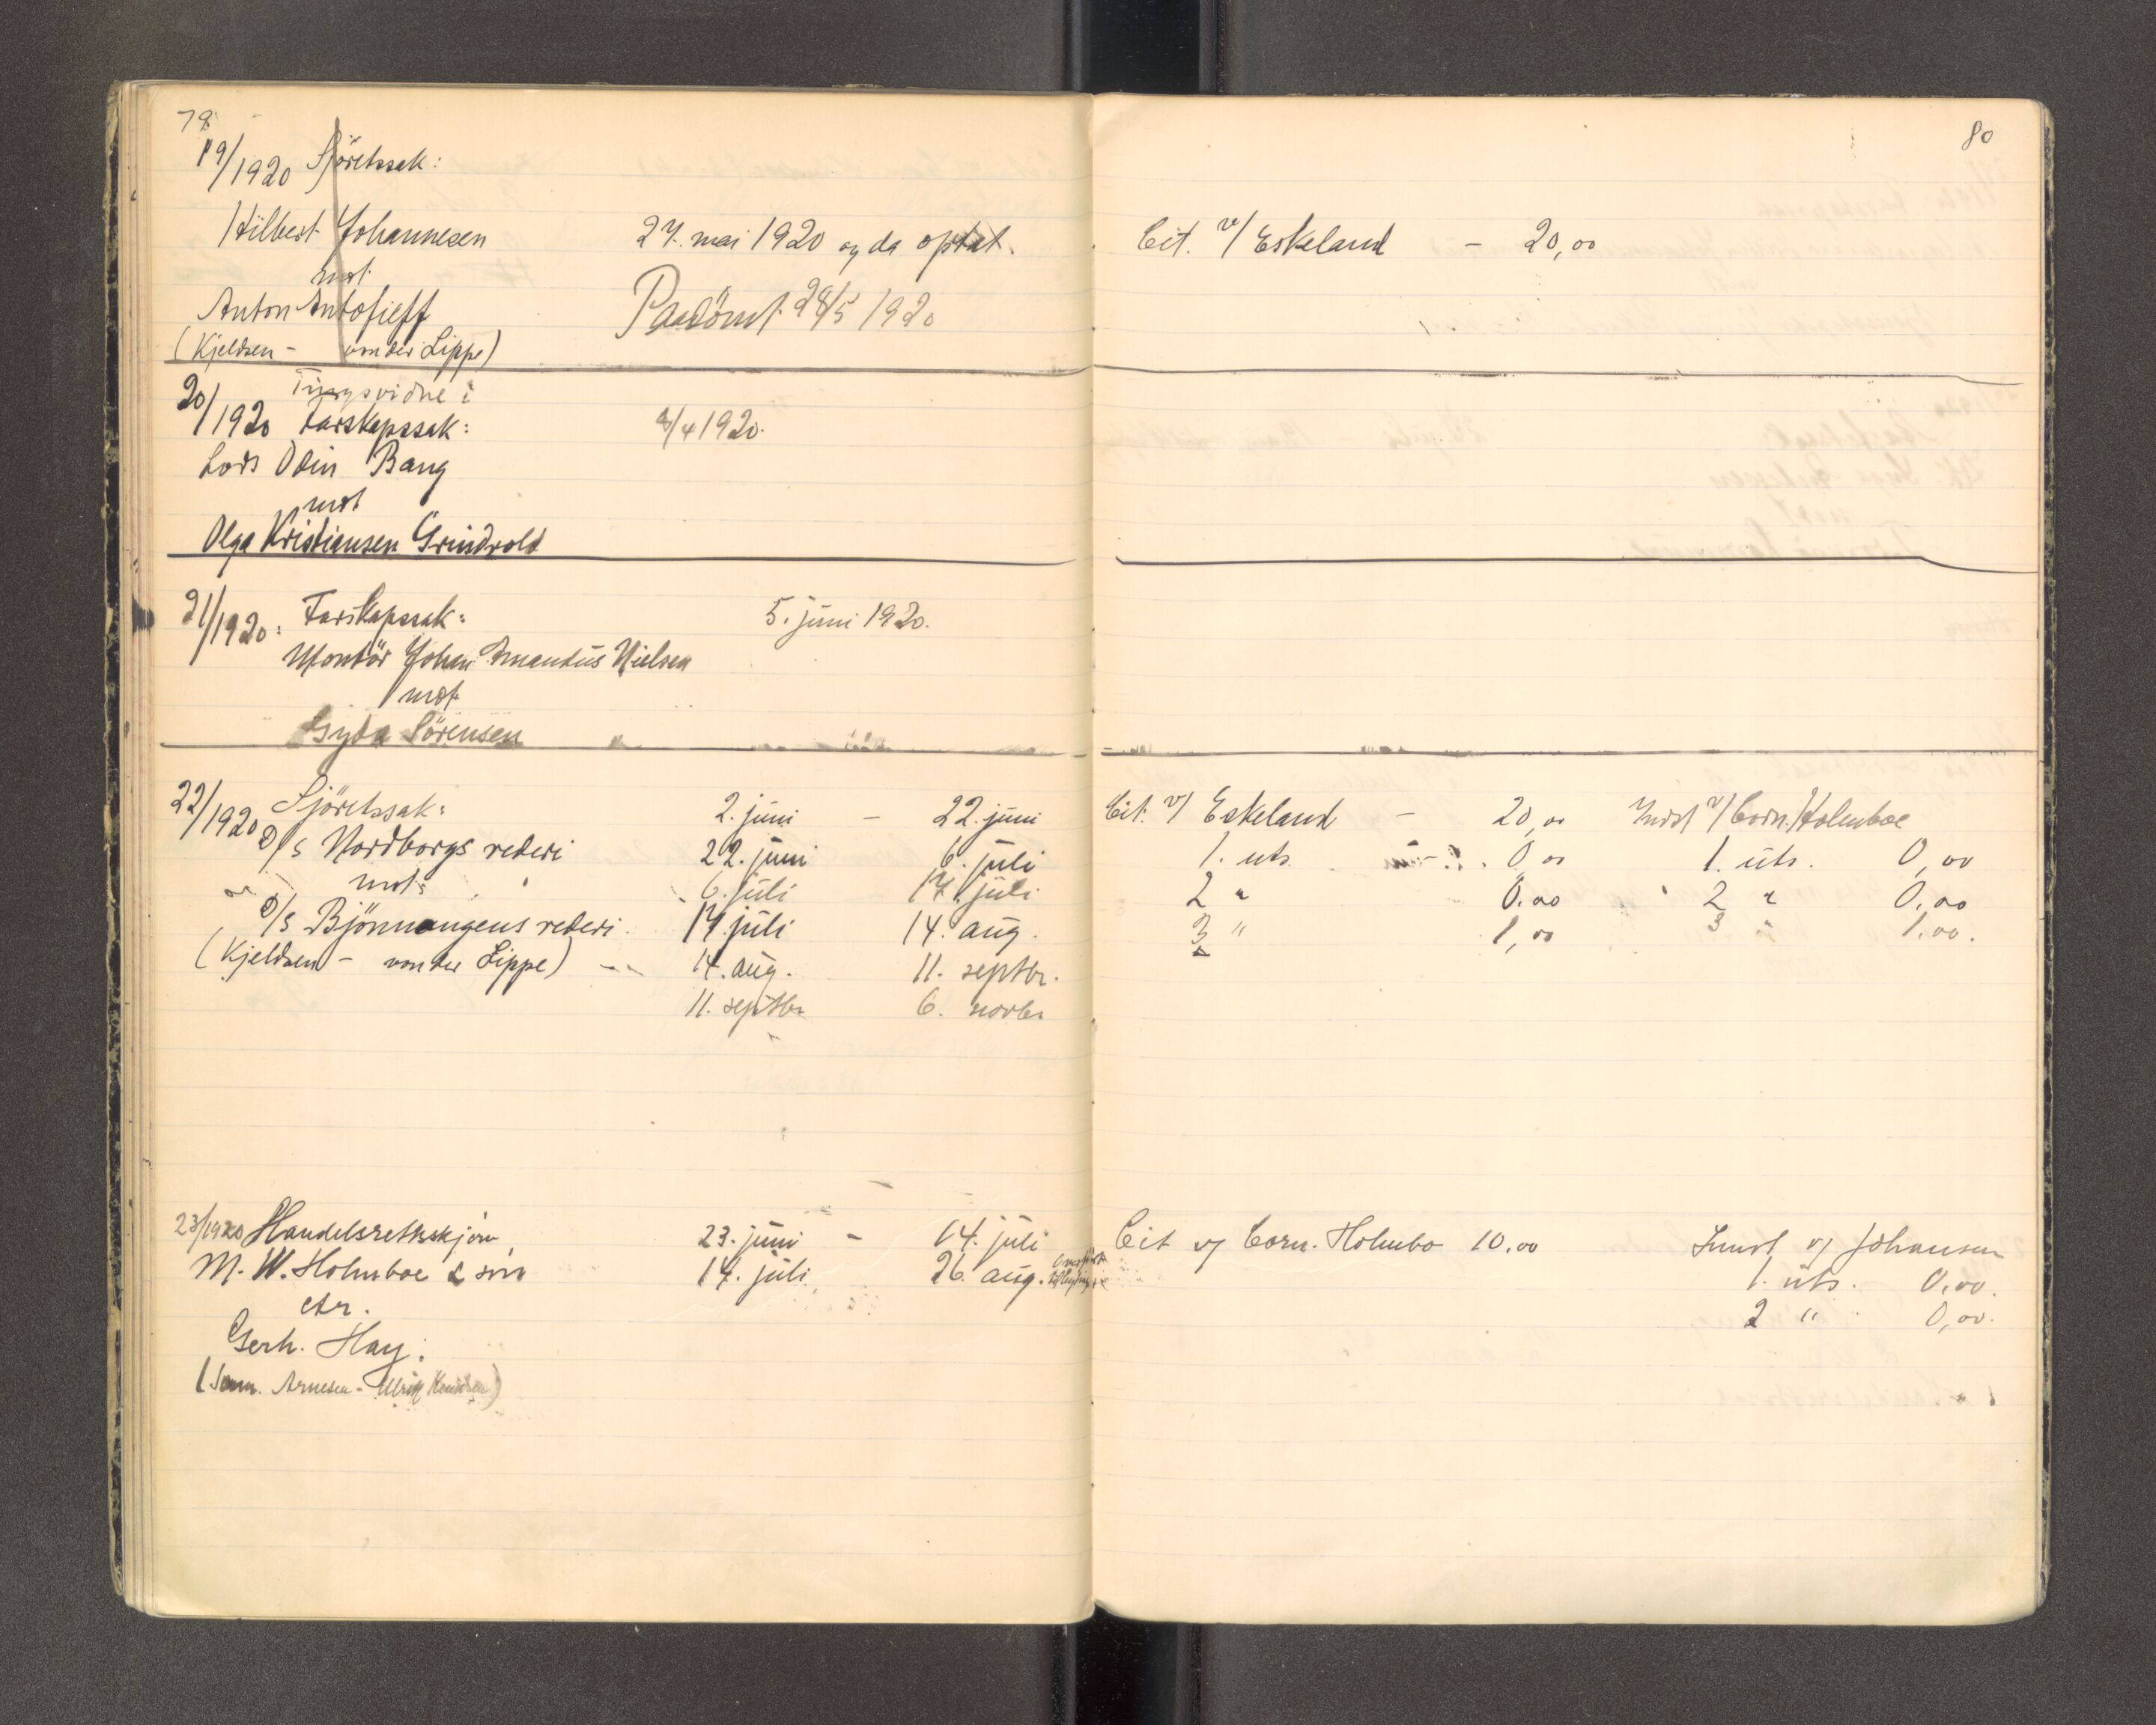 79
19/1920 Sjöretssak:
Hilbert Johannesen
mot
Anton Antofieff
(Kjeldsen - von der Lippe)
27. mai 1920 og da optat.
Paadömt 28/5 1920
20/1920 Tingsvidne i
Farskapssak:
Lods Odin Bang
mot
Olga Kristiansen Grindvold
8/4 1920.
21/1920: Farskapssak:
Montör Johan Amandus Nielsen
mot
Gyda Sörensen
5. juni 1920.
22/1920 Sjöretssak:
D/s Nordborgs rederi
mot:
D/s Bjönnangens rederi
(Kjeldsen - von der Lippe)
2. juni - 22. juni
22. juni 6. juli
6. juli 17. juli
17. juli 14. aug.
14. aug. 11. septbr.
11. septbr 6. novbr
23/1920 Handelsretsskjön
M. W. Holmboe & sön
ctr.
Gerh. Hay.
(Arnesen - Ulrik Knudsen)
23. juni - 14. juli
14. juli 26. aug.
80
Cit. v/ Eskeland - 20,00
Cit. v/ Eskeland - 20,00 Indst v/ Corn. Holmboe
1. uts. 0,00 1. uts. 0,00
2 " 0.00 2 " 0.00
3 " 1,00 3 " 1.00.
Cit v/ Corn. Holmbo 10.00 Innst v/ Johansen
1. uts. 0,00.
2 " 0,00.